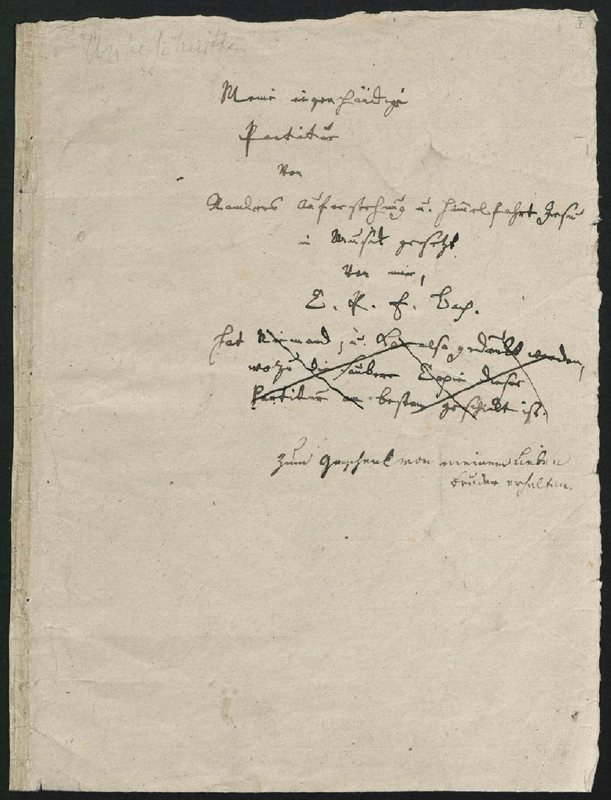 V
Meine eigenhändige
Partitur
Von
Ramlers Auferstehung u. Himmelfahrt Jesu
in Musik gesetzt
Von mir,
C. P. E. Bach.
hat Niemand, u. kan also gedruckt werden,
wozu die saubere Copie dieser
Partitur am besten geschickt ist.
Zum Geschenk von meinem lieben
Bruder erhalten.